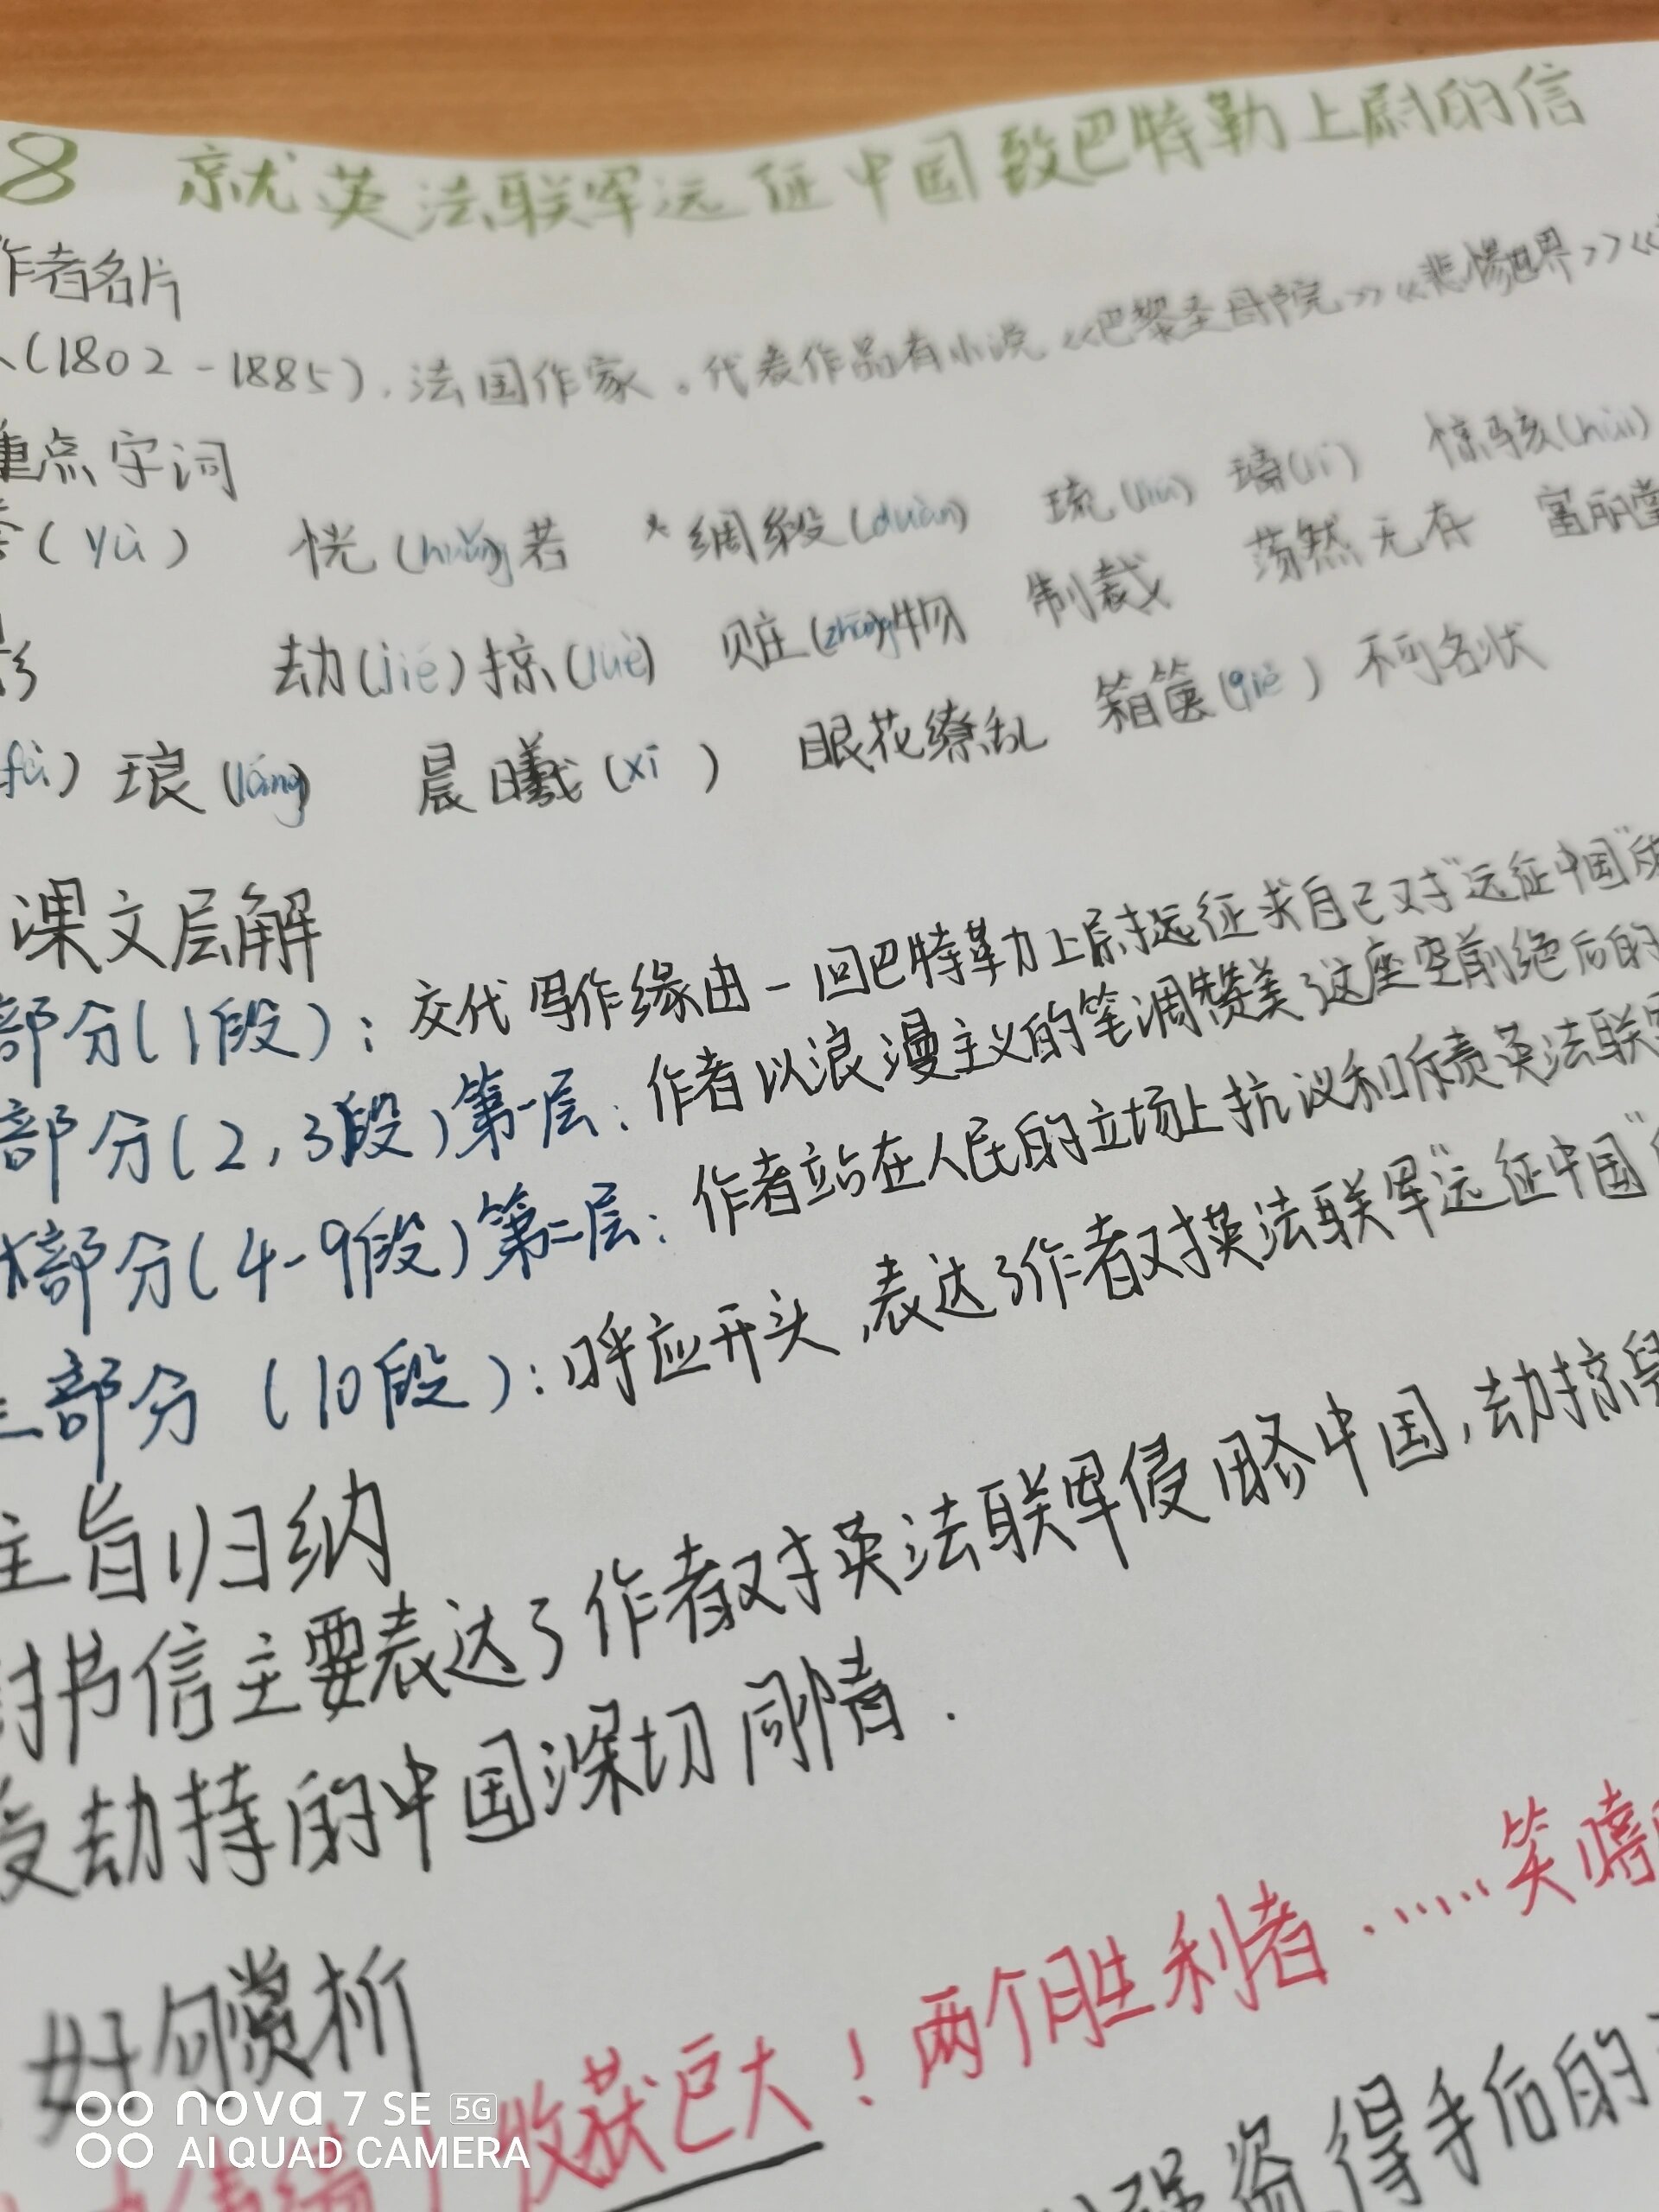 8 就英法联军远征中国致巴特勒上尉的信
作者名片
(1802-1885),法国作家。代表作品有小说《巴黎圣母院》《悲惨世界》《
重点字词
(yù) 恍(huǎng)若 *绸缎(duàn) 琉(liú)璃(lí) 惊骇(hài)
劫(jié)掠(lüè) 赃(zāng)物 制裁 荡然无存 富丽堂
(fà) 琅(láng) 晨曦(xī) 眼花缭乱 箱箧(qiè) 不可名状
课文层解
部分(1段):交代写作缘由-回巴特勒上尉征求自己对"远征中国"
部分(2,3段)第一层:作者以浪漫主义的笔调赞美了这座空前绝后的
部分(4-9段)第二层:作者站在人民的立场上抗议和斥责英法联军
三部分(10段):呼应开头,表达了作者对英法联军"远征中国"
主旨归纳
封书信主要表达了作者对英法联军侵略中国,劫掠
受劫持的中国深切同情.
好句赏析
收获巨大!两个胜利者......笑嘻
强盗得手后的
nova 7 SE 5G
AI QUAD CAMERA